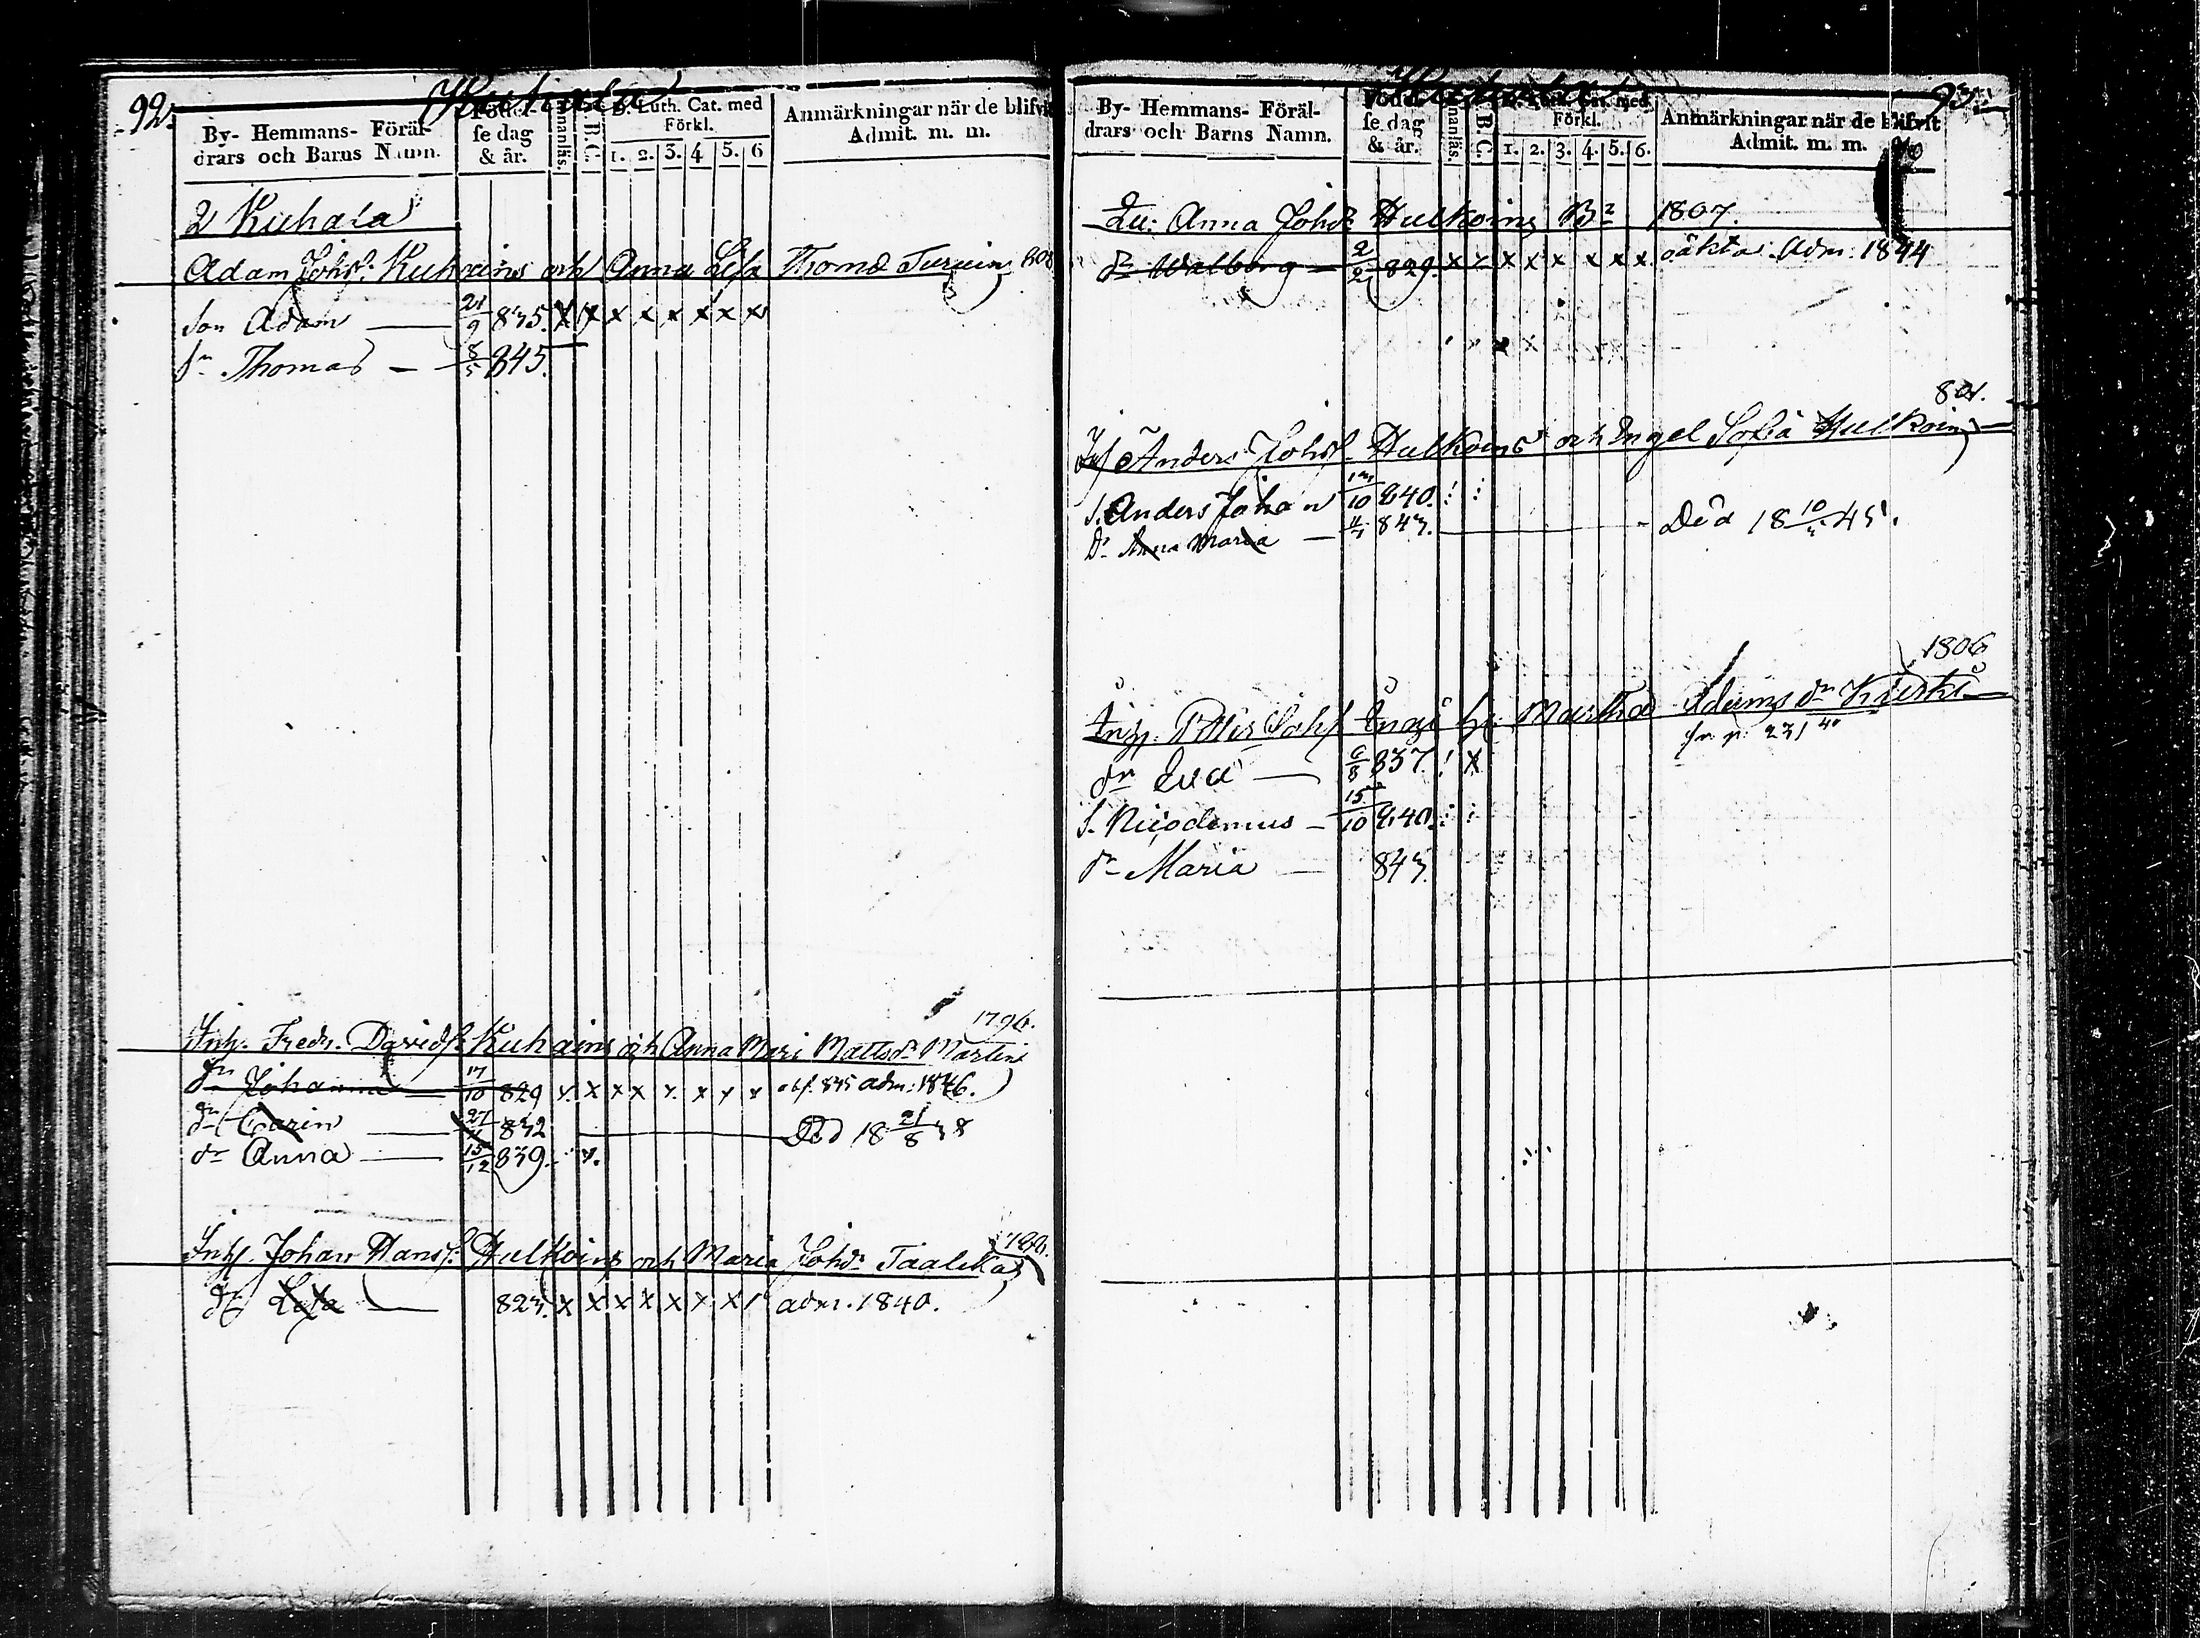 92.
By- Hemmans- Föräl-
drars och Barns Namn.
Födel-
se dag
& år.
Innanläs.
A.B.C.
D. Luth. Cat. med
Förkl.
1. 2. 3. 4 5. 6
Anmärkningar när de blifvit
Admit. m. m.
2 Kuhala
Adam Johsn: Kuhains och Anna Lisa Thomæ 808
Son Adam — 21/9 835. x x x x x x x x
sn Thomas — 8/5 845.
1796.
Inh. Fredr. Davids: Kuhains och Anna Mari Mattsdr Martins
dr Johanna — 17/10 829 x x x x x x x x 835 adm: 1846.
dr Carin — 832 Död 18 21/8 38
dr Anna — 15/12 839. x.
Inh. Johan Hanss: Hulkoins och Maria Johdr Taalika
dr Lisa — 823. x x x x x x x adm. 1840.
93.
By- Hemmans- Föräl-
drars och Barns Namn.
Födel-
se dag
& år.
Innanläs.
A.B.C.
D. Luth. Cat. med
Förkl.
1. 2. 3. 4. 5. 6.
Anmärkningar när de blifvit
Admit. m. m.
Qu: Anna Johdr Hulkoins 1807.
dr Walborg — 2/2 829. x x x x x x x x oäkta. Adm: 1844
801.
Anders Johs Hulkoins och Engel Sofia Hulkoins
s. Anders Johan 10 840.
Dr Anna Maria — 843. — Död 18 10 45.
1806
Inh. Petter Johs Martha Adams dr
231
dr Eva — 6/8 837. x
S. Nicodemus — 15/10 840.
dr Maria — 843.